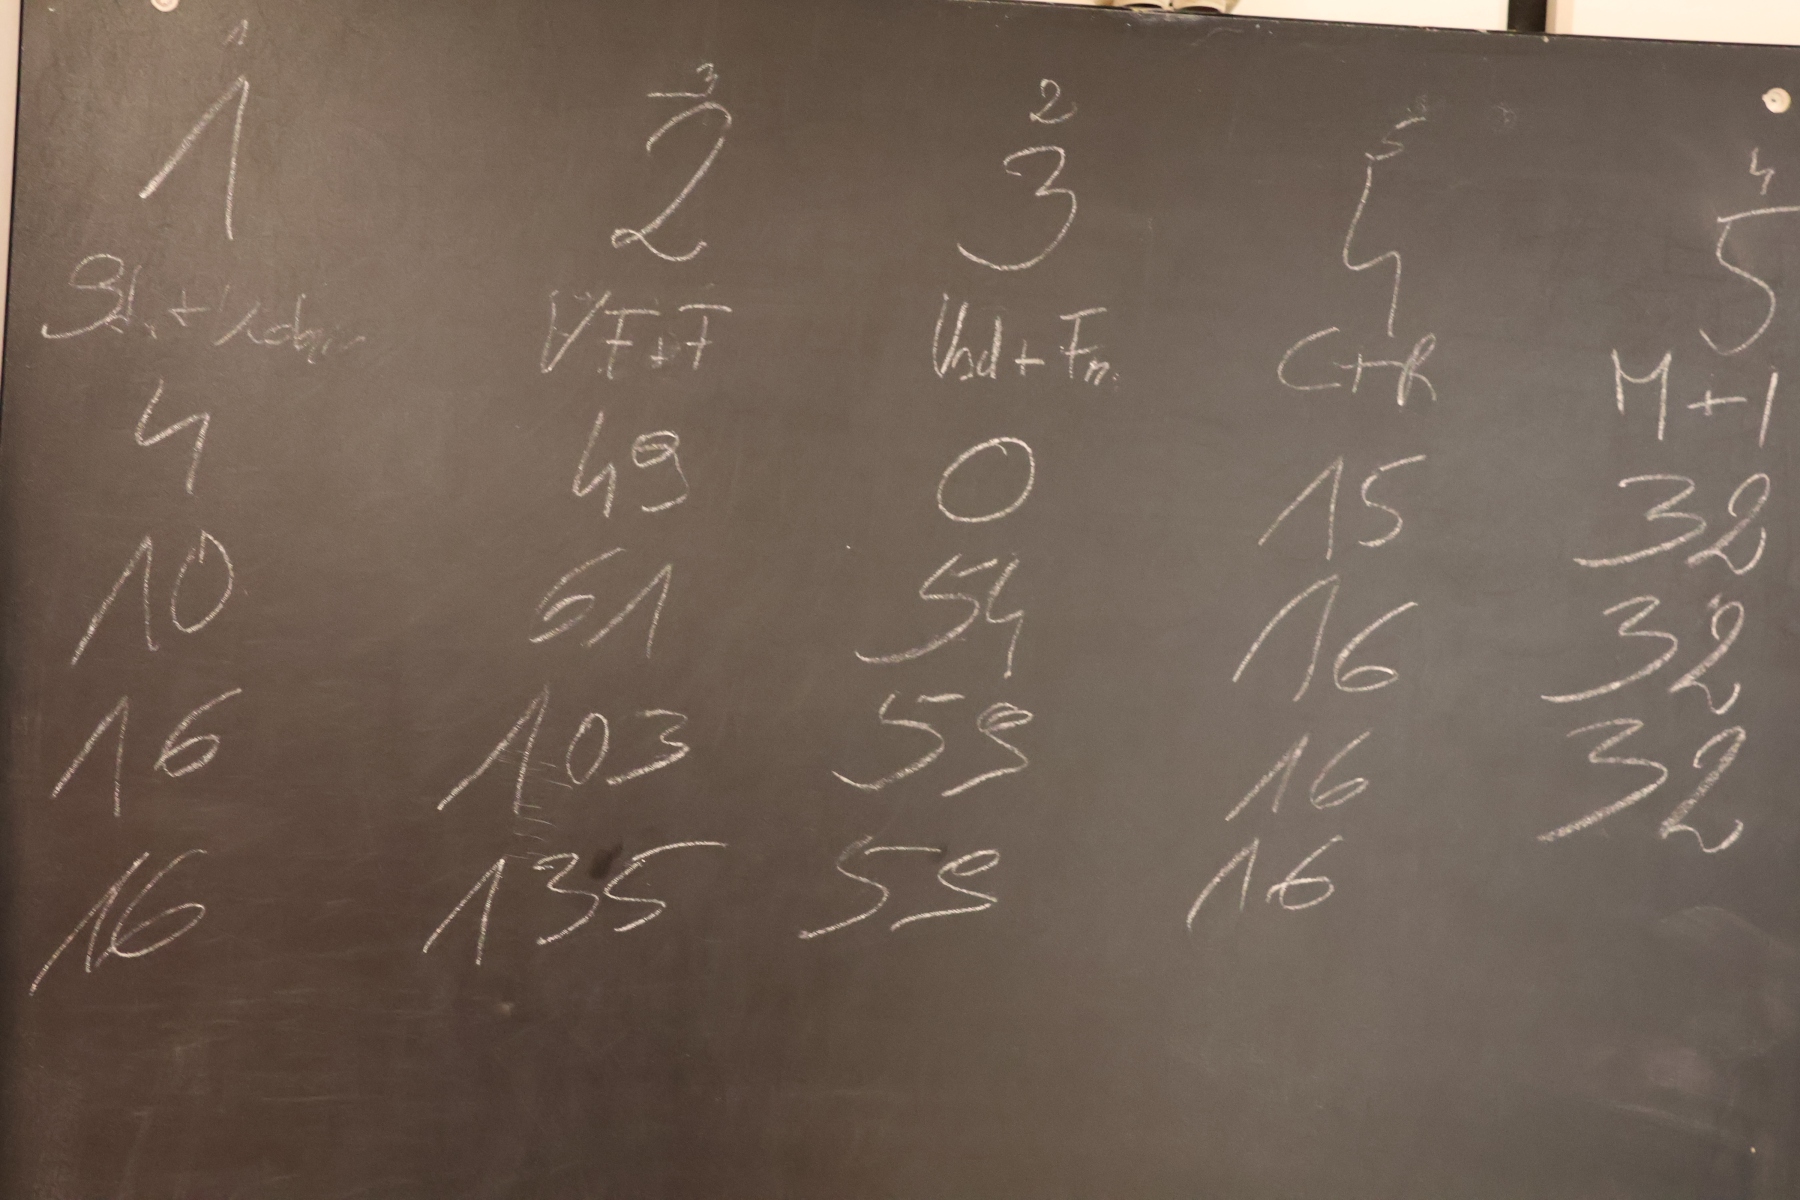 1 3 2 5 4
1 2 3 4 5
VF+F Vad+Fn. C+R M+I
4 49 0 15 32
10 61 54 16 32
16 103 59 16 32
16 135 59 16